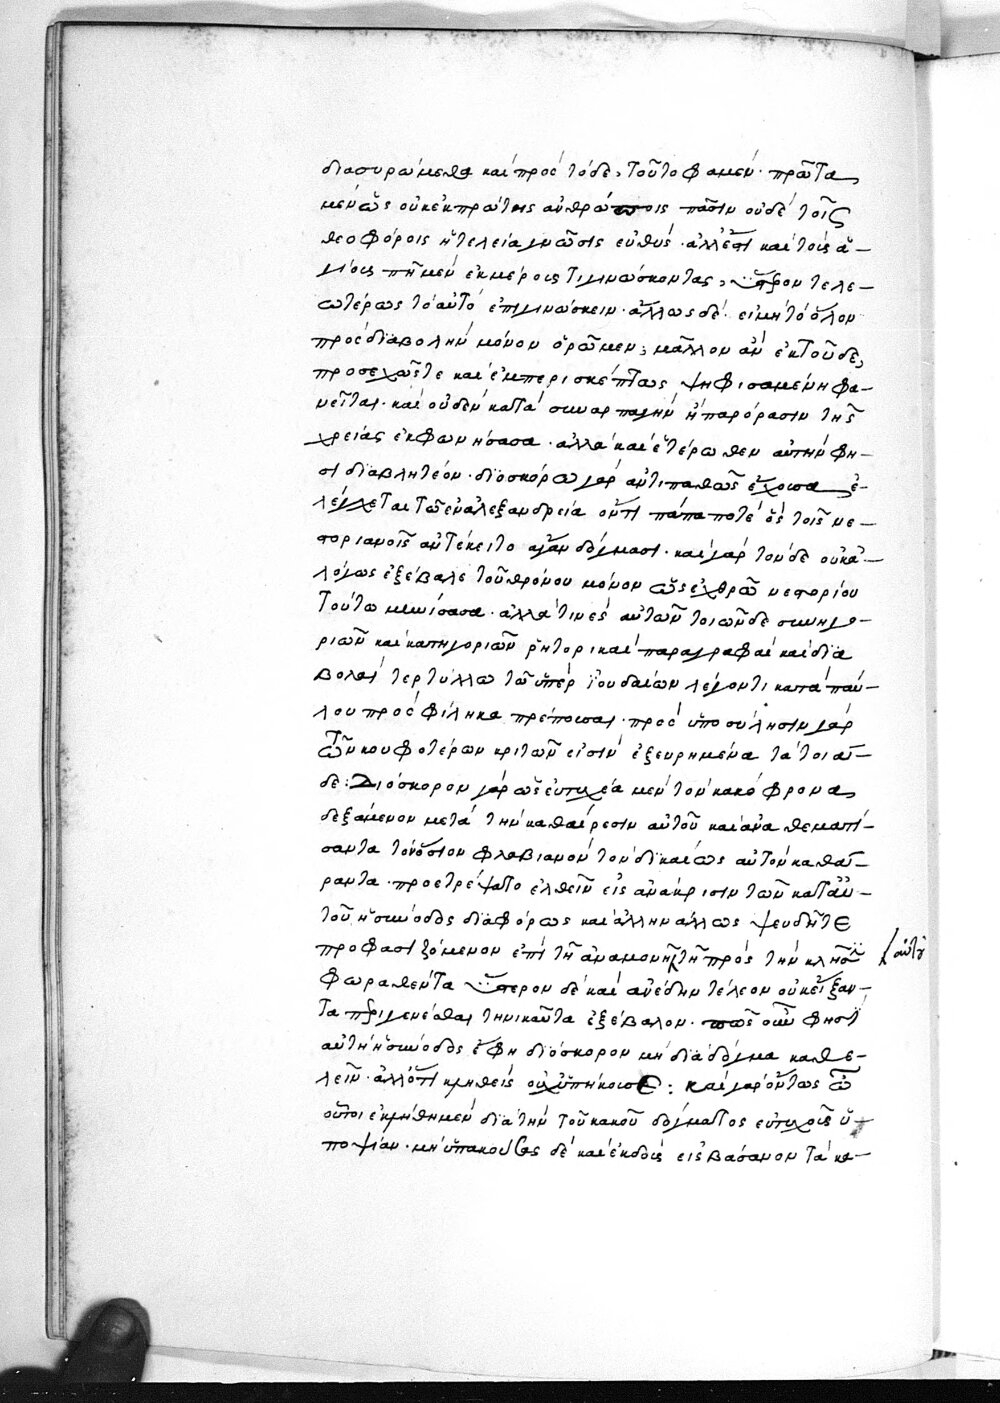 διασυρώμεθα καὶ πρὸς τόδε, τοῦτο φαμέν· πρῶτα
μὲν ὡς οὐκ ἐκ πρώτης ἀνθρώποις πᾶσιν οὐδὲ τοῖς
θεοφόροις ἡ τελεία γνῶσις εὐθύς· ἀλλ' ἔστι καὶ τοὺς ἁ-
γίους πῆ μὲν ἐκ μέρους τι γινώσκοντας, ὕστερον τελε-
ωτέρως τὸ αὐτὸ ἐπιγινώσκειν· ἄλλως δὲ εἰ μὴ τὸ ὅλον
πρὸς διαβολὴν μόνον ὁρῶμεν, μᾶλλον ἂν ἐκ τοῦδε,
προσεχῶς τε καὶ ἐμπερισκέπτως ψηφισαμένη φα-
νεῖται· καὶ οὐδὲν κατὰ συναρπαγὴν ἢ παρόρασιν τῆς
χρείας ἐκφωνήσασα· ἀλλὰ καὶ ἑτέρωθεν αὐτήν φη-
σι διαβλητέον· διοσκόρῳ γὰρ ἀντιπαθῶς ἔχουσα ἐ-
λέγχεται τῶ ἐν ἀλεξανδρεία ὅτι πάπα ποτέ ὃς τοῖς νε-
στοριανοῖς ἀντέκειτο δόγμασι· καὶ γὰρ τόνδε οὐκ ἀ-
λόγως ἐξέβαλε τοῦ θρόνου μόνον ὡς ἐχθρῶ νεστορίου
τούτω μανίσασα· ἀλλά τινες αὐτῶν τοιῶνδε συνηγο-
ριῶν καὶ κατηγοριῶν ῥητορικαὶ παραγραφαὶ καὶ δια
βολαὶ τερτύλλω τῶ ὑπὲρ ἰουδαίων λέγοντι κατὰ παύ-
λου πρὸς φίληκα πρέπουσαι· πρὸς ὑποσύλησιν γὰρ
τῶν κουφοτέρων κριτῶν εἰσὶν ἐξευρημένα τὰ τοιαῦ-
δε: Διόσκορον γὰρ ὡς εὐτυχέα μὲν τὸν κακόφρονα,
δεξάμενον μετὰ τὴν καθαίρεσιν αὐτοῦ καὶ ἀναθεματί-
σαντα τὸν ὅσιον φλαβιανὸν τὸν δικαίως αὐτὸν καθαί-
ραντα· προετρέψατο ἐλθεῖν εἰς ἀνάκρισιν τῶν κατ' αὐ-
τοῦ ἡ σύνοδος διαφόρως καὶ ἄλλην ἄλλως ψευδῆ τε
προφασιζόμενον ἐπὶ τῆ ἀναμονῆ τῆ πρὸς τὴν κλῆσιν
αὐτοῦ
φωραθέντα ὕστερον δὲ καὶ ἀνέδην τέλεον οὐκ εἴξαν-
τα παραγενέσθαι τηνικαῦτα ἐξέβαλον· πῶς οὖν φησὶ
αὐτὴ ἡ σύνοδος ἔφη διόσκορον μὴ διὰ δόγμα καθε-
λεῖν· ἀλλ' ὅτι κληθεὶς οὐχ ὑπήκουσε: καὶ γὰρ ὄντως ὦ
οὗτοι ἐκλήθη μὲν διὰ τὴν τοῦ κακοῦ δόγματος εὐτυχοῦς ὑ-
ποψίαν· μὴ ὑπακούσας δὲ καὶ ἐκδοὺς εἰς βάσανον τὰ κα-